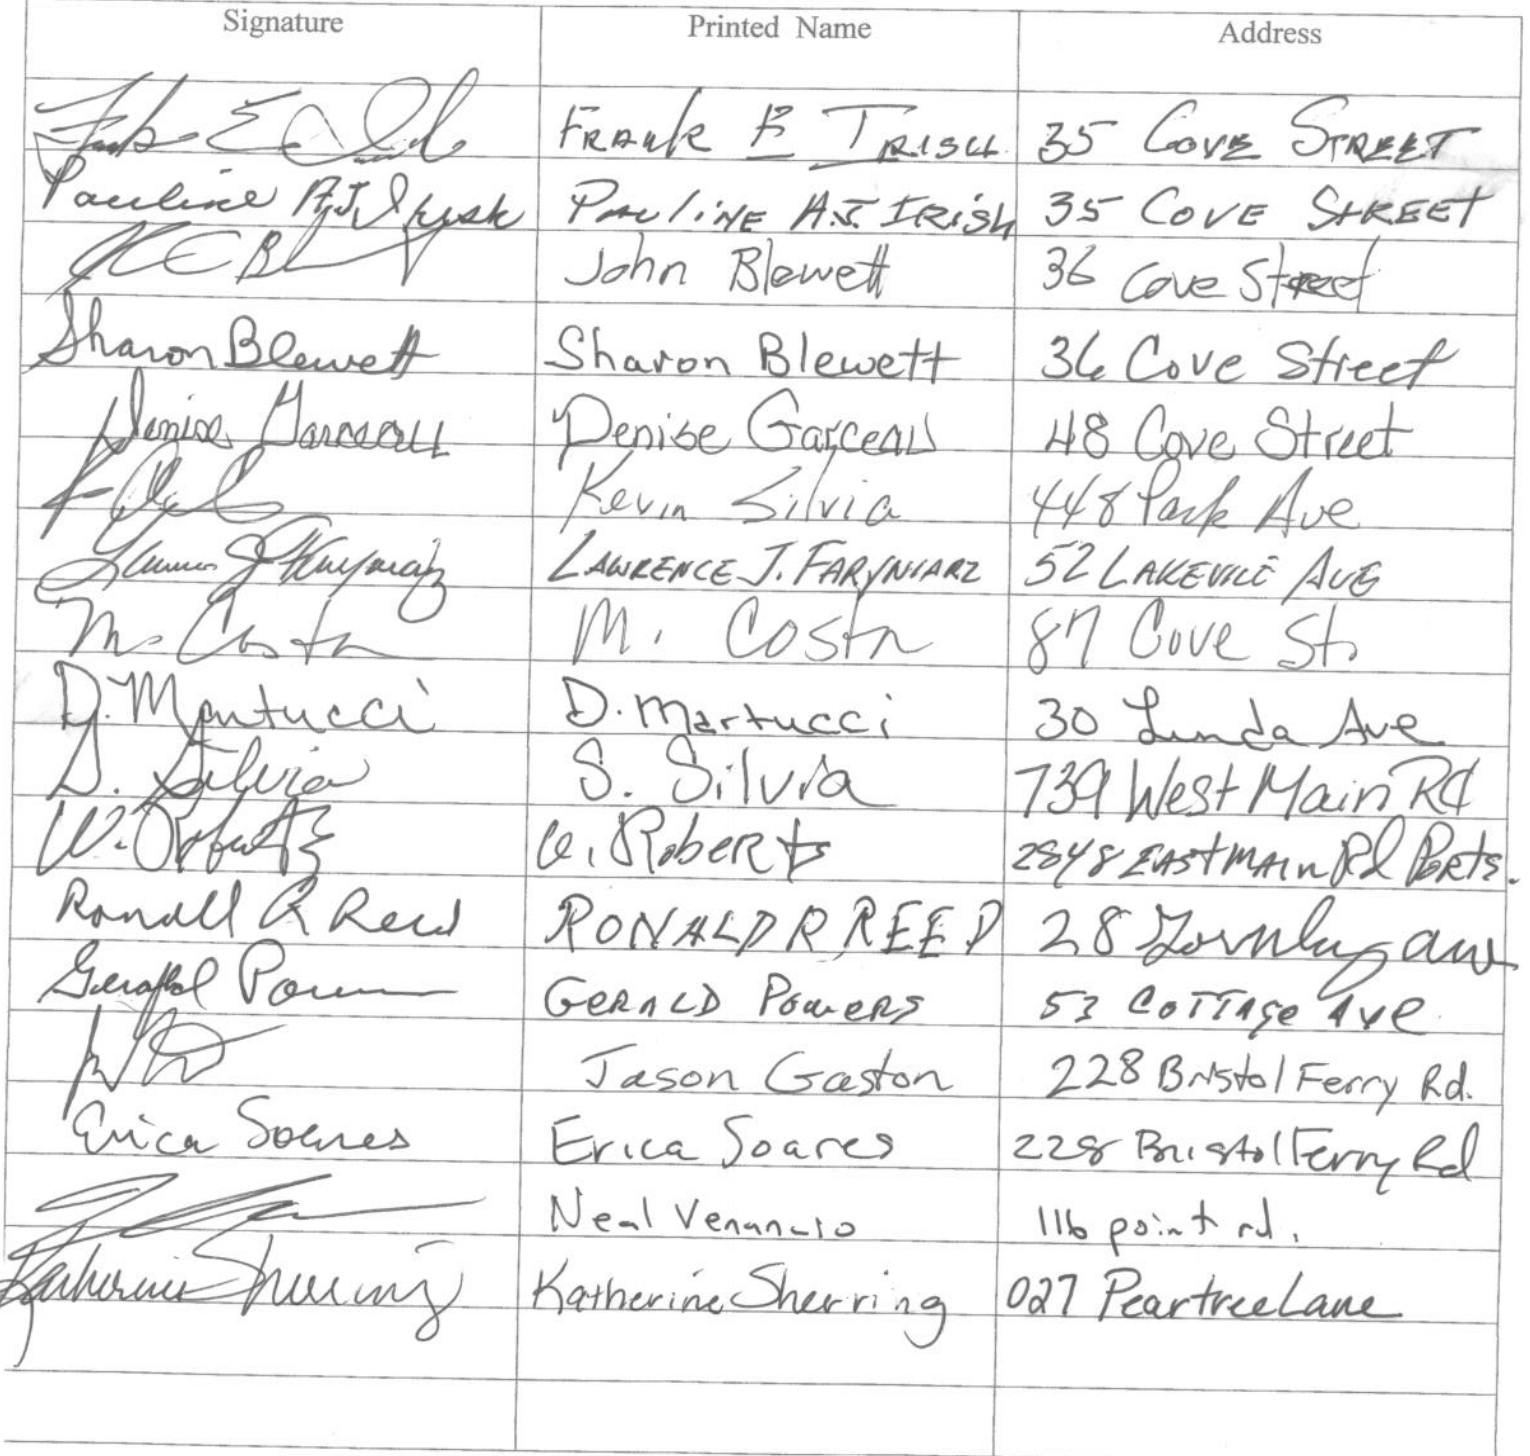 Signature Printed Name Address
FRANK E IRISH 35 COVE STREET
Pauline A.J. Irish PAULINE A.J. IRISH 35 COVE STREET
John Blewett 36 Cove Street
Sharon Blewett Sharon Blewett 36 Cove Street
Denise Garceau Denise Garceau 48 Cove Street
Kevin Silvia 448 Park Ave
LAWRENCE J. FARYNIARZ 52 LAKEVILLE AVE
M. Costa M. Costa 87 Cove St.
D. Martucci D. Martucci 30 Linda Ave
S. Silvia S. Silvia 739 West Main Rd
W. Roberts W. Roberts 2848 EAST MAIN Rd Ports.
Ronald R Reed RONALD R REED 28 ave
Gerald Powers GERALD POWERS 53 COTTAGE AVE
Jason Gaston 228 Bristol Ferry Rd.
Erica Soares Erica Soares 228 Bristol Ferry Rd
Neal Venancio 116 point rd.
Katherine Sherring Katherine Sherring 027 Peartree Lane